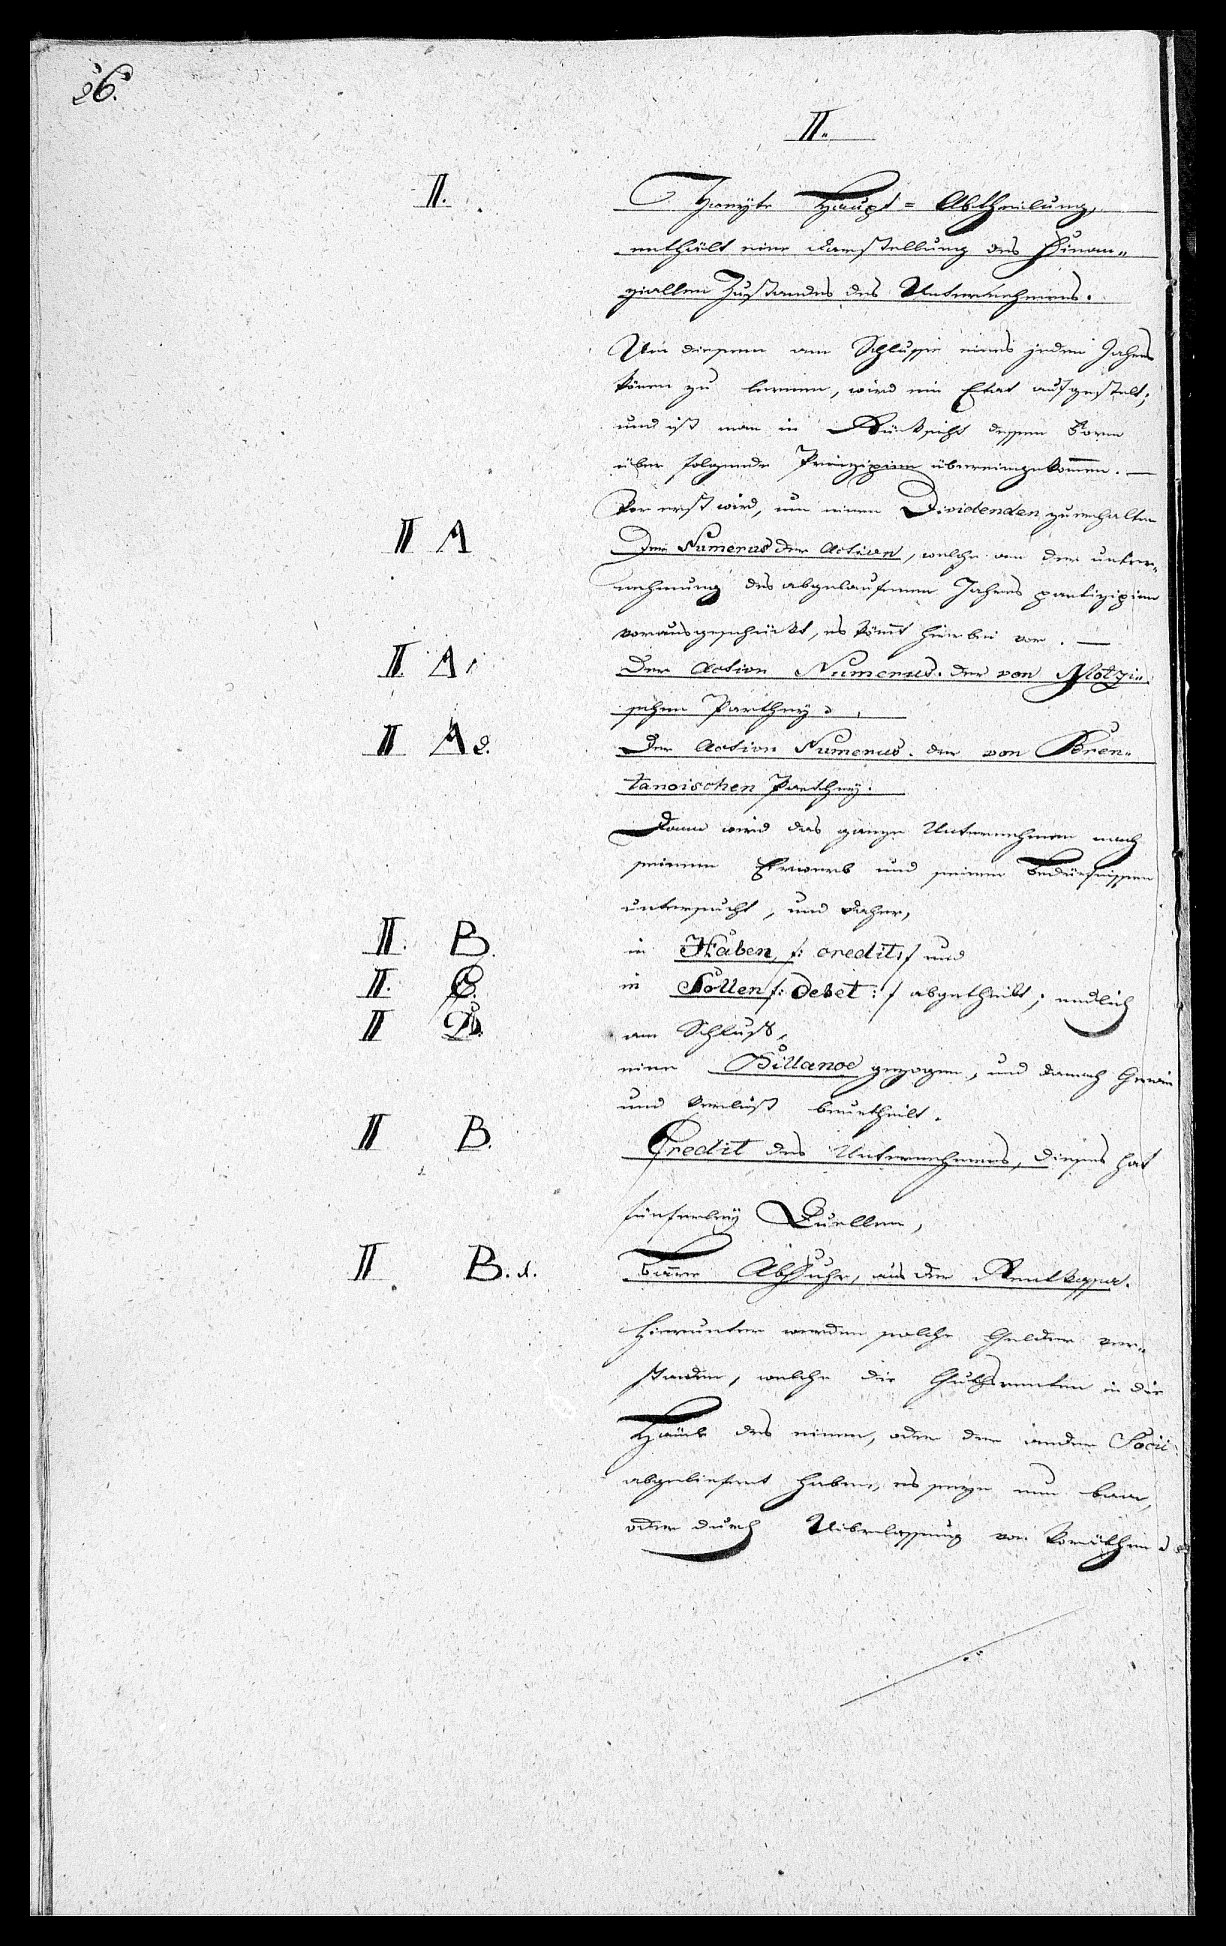 26.
II.
II. Zweyte Haupt= Abtheilung,
enthält eine Darstellung des Finan„
ziellen Zustandes des Unternehmens.
Um diesen am Schlusse eines jeden Jahres
könen zu lernen, wird ein Etat aufgestelt;
und ist man in Rücksicht dessen Form
über folgende Prinzipien übereingekommen. —
Vor erst wird, um einen Dividenden zu erhalten
II A Der Numerus der Action, welche an der unter„
nehmung des abgelaufenen Jahres partizipiren
vorausgeschückt, es kömt hierbei vor. —
II. A 1 Der Action Numerus. der von Klotzi„
schen Parthey.
II A 2. Der Action Numerus. der von Bren„
tanoischen Parthey.
Dann wird das ganze Unternehmen nach
seinem Erwerb und seinen Bedürfnissen
untersucht, und daher,
II. B. in Haben /: credit :/ und
II. C. in Sollen /: Debet :/ abgetheilt; endlich
II D. am Schluß,
eine Billance gezogen, und danach Gewin
und Verlust beurtheilt.
II B. Credit des Unternehmens, dieses hat
fünferley Quellen,
II B. 1. baare Abfuhr, aus der Rentkassa.
Hierunter werden solche Gelder ver„
standen, welche die Guthsrenten in die
Hände des einen, oder der andern Socii
abgeliefert haben, es seye nun baar,
oder durch Uiberlassung von Koräthen